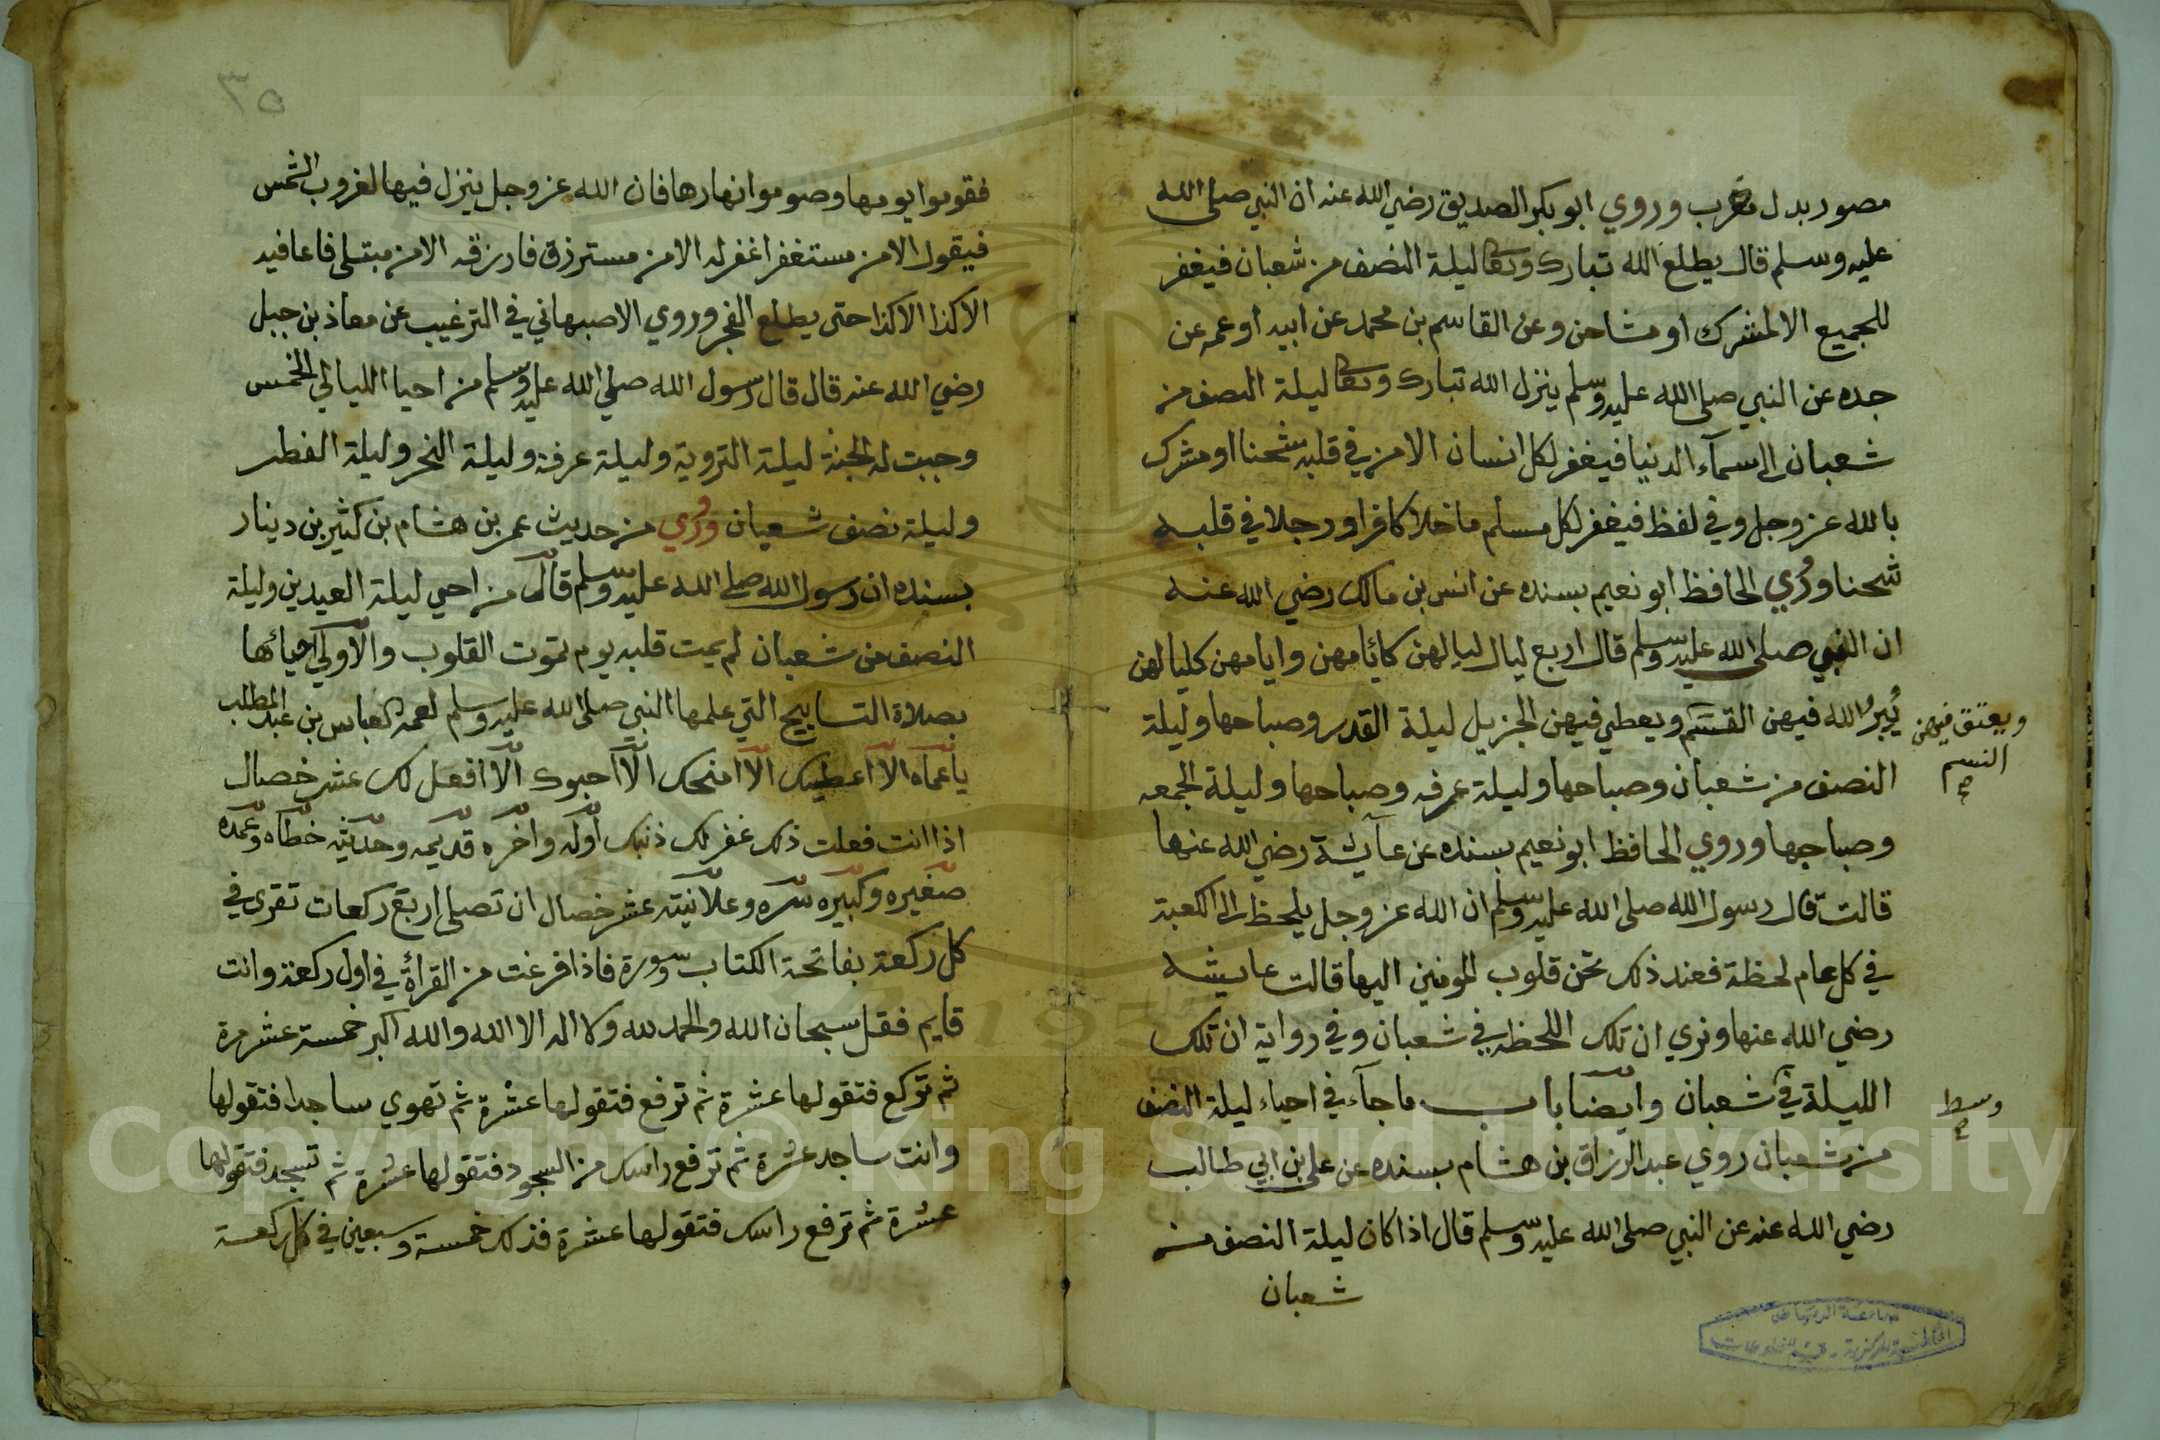 مصور بدل معرب وروي ابو بكر الصديق رضي الله عنه ان النبي صلى الله
عليه وسلم قال يطلع الله تبارك وتعا ليلة النصف من شعبان فيغفر
للجميع الا لمشرك او مشاحن وعن القاسم بن محمد عن ابيه او عمه عن
جده عن النبي صلى الله عليه وسلم ينزل الله تبارك وتعا ليلة النصف من
شعبان الى سمآء الدنيا فيغفر لكل انسان الا من في قلبه شحنا او مشرك
بالله عز وجل وفي لفظ فيغفر لكل مسلم ما خلا كافرا ورجلا في قلبه
شحنا وروي الحافظ ابو نعيم بسنده عن انس بن مالك رضي الله عنه
ان النبي صلى الله عليه وسلم قال اربع ليال ليالهن كايامهن وايامهن كليالهن
يُبِرُّ الله فيهن القسم ويعطي فيهن الجزيل ليلة القدر وصباحها وليلة
ويعتق فيهن
النسم
صح
النصف من شعبان وصباحها وليلة عرفه وصباحها وليلة الجمعه
وصباحها وروي الحافظ ابو نعيم بسنده عن عآيشة رضي الله عنها
قالت قال رسول الله صلى الله عليه وسلم ان الله عز وجل يلحظ الى الكعبة
في كل عام لحظة فعند ذلك تحن قلوب المومنين اليها قالت عايشه
رضي الله عنها ونري ان تلك اللحظه في شعبان وفي رواية ان تلك
الليلة في شعبان وايضا باب ما جآء في احياء ليلة النصف
وسط
صح
من شعبان روي عبد الرزاق بن هشام بسنده عن علي بن ابي طالب
رضي الله عنه عن النبي صلى الله عليه وسلم قال اذا كان ليلة النصف من
شعبان
جامعة الرياض
المكتبة المركزية - قسم المخطوطات
٣٥
فقوموا يومها وصوموا نهارها فان الله عز وجل ينزل فيها لغروب الشمس
فيقول الا من مستغفر اغفر له الا من مسترزق فارزقه الا من مبتلى فاعافيه
الا كذا الا كذا حتى يطلع الفجر وروي الاصبهاني في الترغيب عن معاذ بن جبل
رضي الله عنه قال قال رسول الله صلي الله عليه وسلم من احيا الليالي الخمس
وجبت له الجنة ليلة التروية وليلة عرفة وليلة النحر وليلة الفطر
وليلة نصف شعبان وروي من حديث عمر بن هشام بن كثير بن دينار
بسنده ان رسول الله صلى الله عليه وسلم قال من احيي ليلة العيدين وليلة
النصف من شعبان لم يمت قلبه يوم تموت القلوب والاولى احيائها
بصلاة التسابيح التي علمها النبي صلى الله عليه وسلم لعمه العباس بن عبد المطلب
يا عماه الا اعطيك الا امنحك الا احبوك الا افعل لك عشر خصال
اذا انت فعلت ذلك غفر لك ذنبك اوله واخره قديمه وحديثه خطاه وعمده
صغيره وكبيره سره وعلانيته عشر خصال ان تصلي اربع ركعات تقرى في
كل ركعة بفاتحة الكتاب وسورة فاذا فرغت من القرأة في اول ركعة وانت
قايم فقل سبحان الله والحمد لله ولا اله الا الله والله اكبر خمسة عشر مرة
ثم تركع فتقولها عشرة ثم ترفع فتقولها عشرة ثم تهوي ساجدا فتقولها
وانت ساجد عشرة ثم ترفع راسك من السجود فتقولها عشرة ثم تسجد فتقولها
عشرة ثم ترفع راسك فتقولها عشرة فذلك خمسة وسبعين في كل ركعة
Copyright © King Saud University